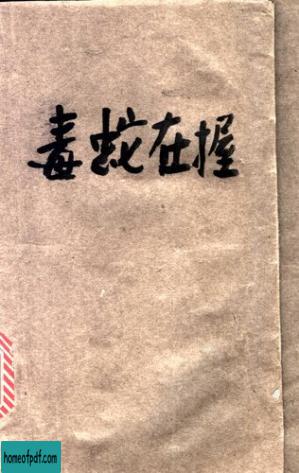 毒蛇在握
homeofpdf.com